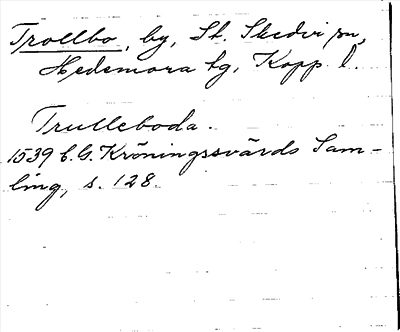 Trollbo, by, St. Skedvi sn,
Hedemora tg, Kopp. l.
Trulleboda.
1539 C.G. Kröningssvärds Sam-
ling, s. 128.